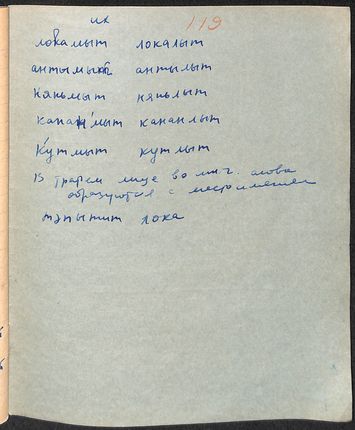 их 119
локамыт локалыт
антымыт антылыт
няньмыт няньлыт
кананмыт кананлыт
кутмыт кутлыт
в третьем лице во мн.ч. слова
образуются с местоимением
тэпытит лока